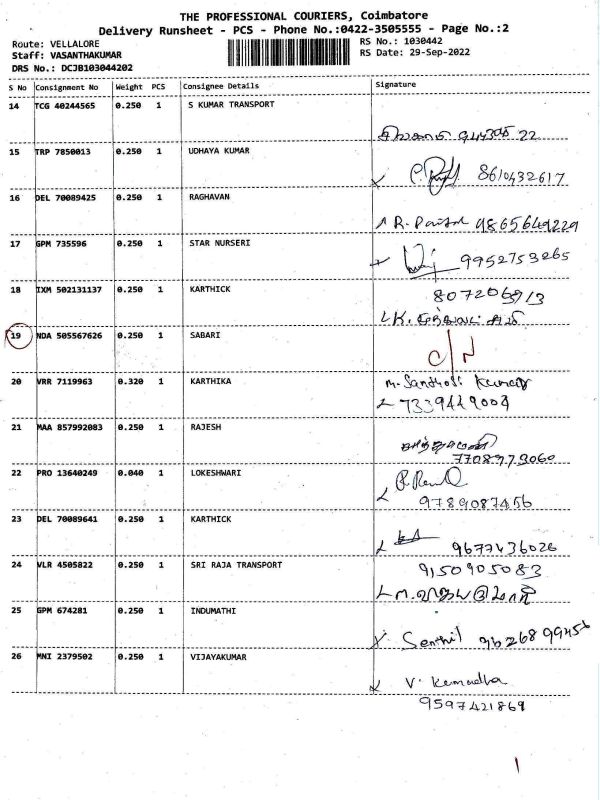 THE PROFESSIONAL COURIERS, Coimbatore
Delivery Runsheet - PCS - Phone No.:0422-3505555 - Page No.:2
Route: VELLALORE RS No.: 1030442
Staff: VASANTHAKUMAR RS Date: 29-Sep-2022
DRS No.: DCJB103044202
S No Consignment No Weight PCS Consignee Details Signature
14 TCG 40244565 0.250 1 S KUMAR TRANSPORT
15 TRP 7850013 0.250 1 UDHAYA KUMAR
8610432617
16 DEL 70089425 0.250 1 RAGHAVAN
9865649229
17 GPM 735596 0.250 1 STAR NURSERI
9952753265
18 IXM 502131137 0.250 1 KARTHICK
19 NDA 505567626 0.250 1 SABARI
C/N
20 VRR 7119963 0.320 1 KARTHIKA
7339449004
21 MAA 857992083 0.250 1 RAJESH
7708973060
22 PRO 13640249 0.040 1 LOKESHWARI
9789087456
23 DEL 70089641 0.250 1 KARTHICK
9677436026
24 VLR 4505822 0.250 1 SRI RAJA TRANSPORT
9150905083
25 GPM 674281 0.250 1 INDUMATHI
Senthil 9626899456
26 MNI 2379502 0.250 1 VIJAYAKUMAR
9597421869